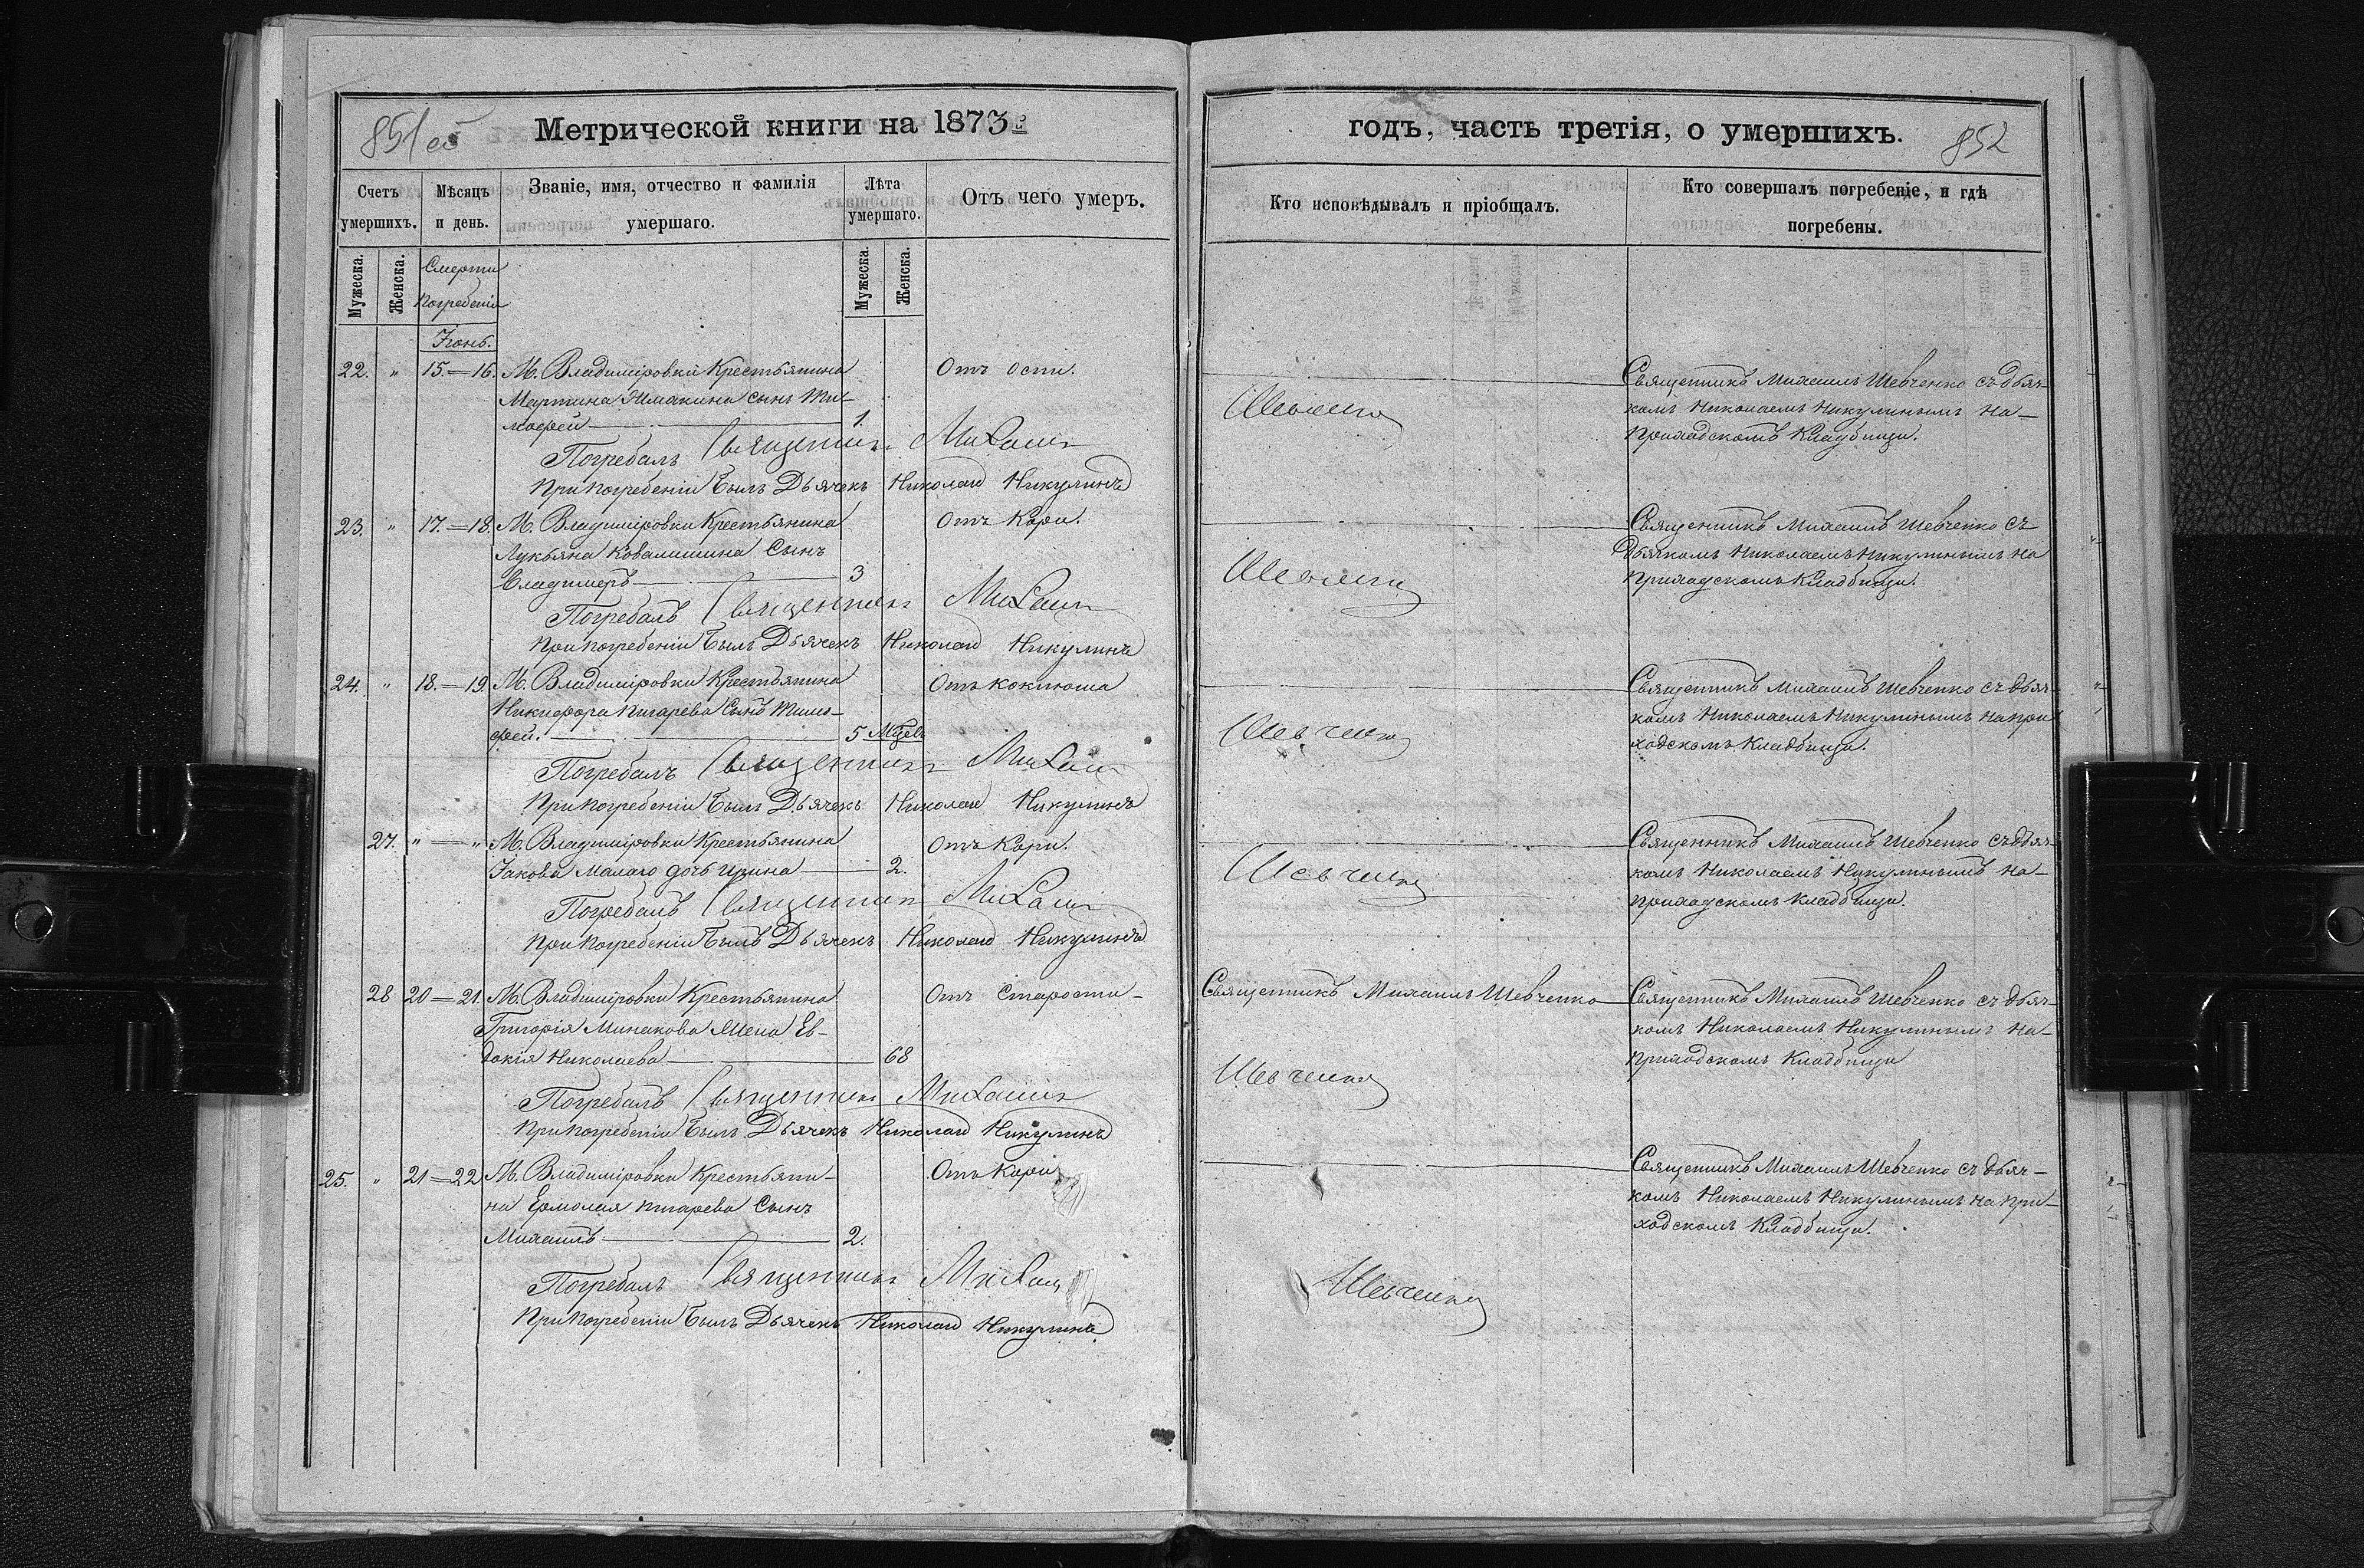 851 об
Метрической книги на 1873й
Счетъ умершихъ.
Мѣсяцъ и день.
Званіе, имя, отчество и фамилія умершаго.
Лѣта умершаго.
Отъ чего умеръ.
Мужеска.
Женска.
Смерти
погребенія
Мужеска.
Женска.
Іюнь.
22. " 15.—16. М. Владиміровки Крестьянина Отъ оспи.
Мартина сынъ Ти-
мофей 1.
Погребалъ Священникъ Михаилъ
При погребеніи былъ Дьячекъ Николай Никулинъ
23. " 17.—18. М. Владиміровки Крестьянина Отъ Кори.
Лукьяна Ковалишина Сынъ
Владимеръ 3
Погребалъ Священникъ Михаилъ
При погребеніи былъ Дьячекъ Николай Никулинъ
24. " 18.—19. М. Владиміровки Крестьянина Отъ коклюша
Никифора Пигарева Сынъ Тимо-
фей. 5 Мѣсѣв
Погребалъ Священникъ Михаилъ
При погребеніи былъ Дьячекъ Николай Никулинъ
27. " — " М. Владиміровки Крестьянина Отъ Кори.
Іакова Малаго дочь Ирина 2.
Погребалъ Священникъ Михаилъ
При погребеніи былъ Дьячекъ Николай Никулинъ
28 20—21. М. Владиміровки Крестьянина Отъ Старости
Григорія Минакова Жена Ев-
докія Николаева 68
Погребалъ Священникъ Михаилъ
При погребеніи былъ Дьячекъ Николай Никулинъ
25. " 21—22 М. Владиміровки Крестьяни- Отъ Кори
на Ермолая Пигарева Сынъ
Михаилъ 2.
Погребалъ Священникъ Михаилъ
При погребеніи былъ Дьячекъ Николай Никулинъ
годъ, часть третія, о умершихъ.
852
Кто исповѣдывалъ и пріобщалъ.
Кто совершалъ погребеніе, и гдѣ погребены.
Священникъ Михаилъ Шевченко съ дьяч-
комъ Николаемъ Никулинымъ на-
приходскомъ Кладбищи.
Шевченко
Священникъ Михаилъ Шевченко съ
дьячкомъ Николаемъ Никулинымъ на
приходскомъ Кладбищи.
Шевченко
Священникъ Михаилъ Шевченко съ дьяч-
комъ Николаемъ Никулинымъ на при
ходскомъ Кладбищи.
Шевченко
Священникъ Михаилъ Шевченко съ дьяч-
комъ Николаемъ Никулинымъ на-
приходскомъ кладбищи.
Шевченко
Священникъ Михаилъ Шевченко Священникъ Михаилъ Шевченко съ дьяч-
комъ Николаемъ Никулинымъ на-
приходскомъ Кладбищи
Шевченко
Священникъ Михаилъ Шевченко съ дьяч-
комъ Николаемъ Никулинымъ на при-
ходскомъ Кладбищи.
Шевченко